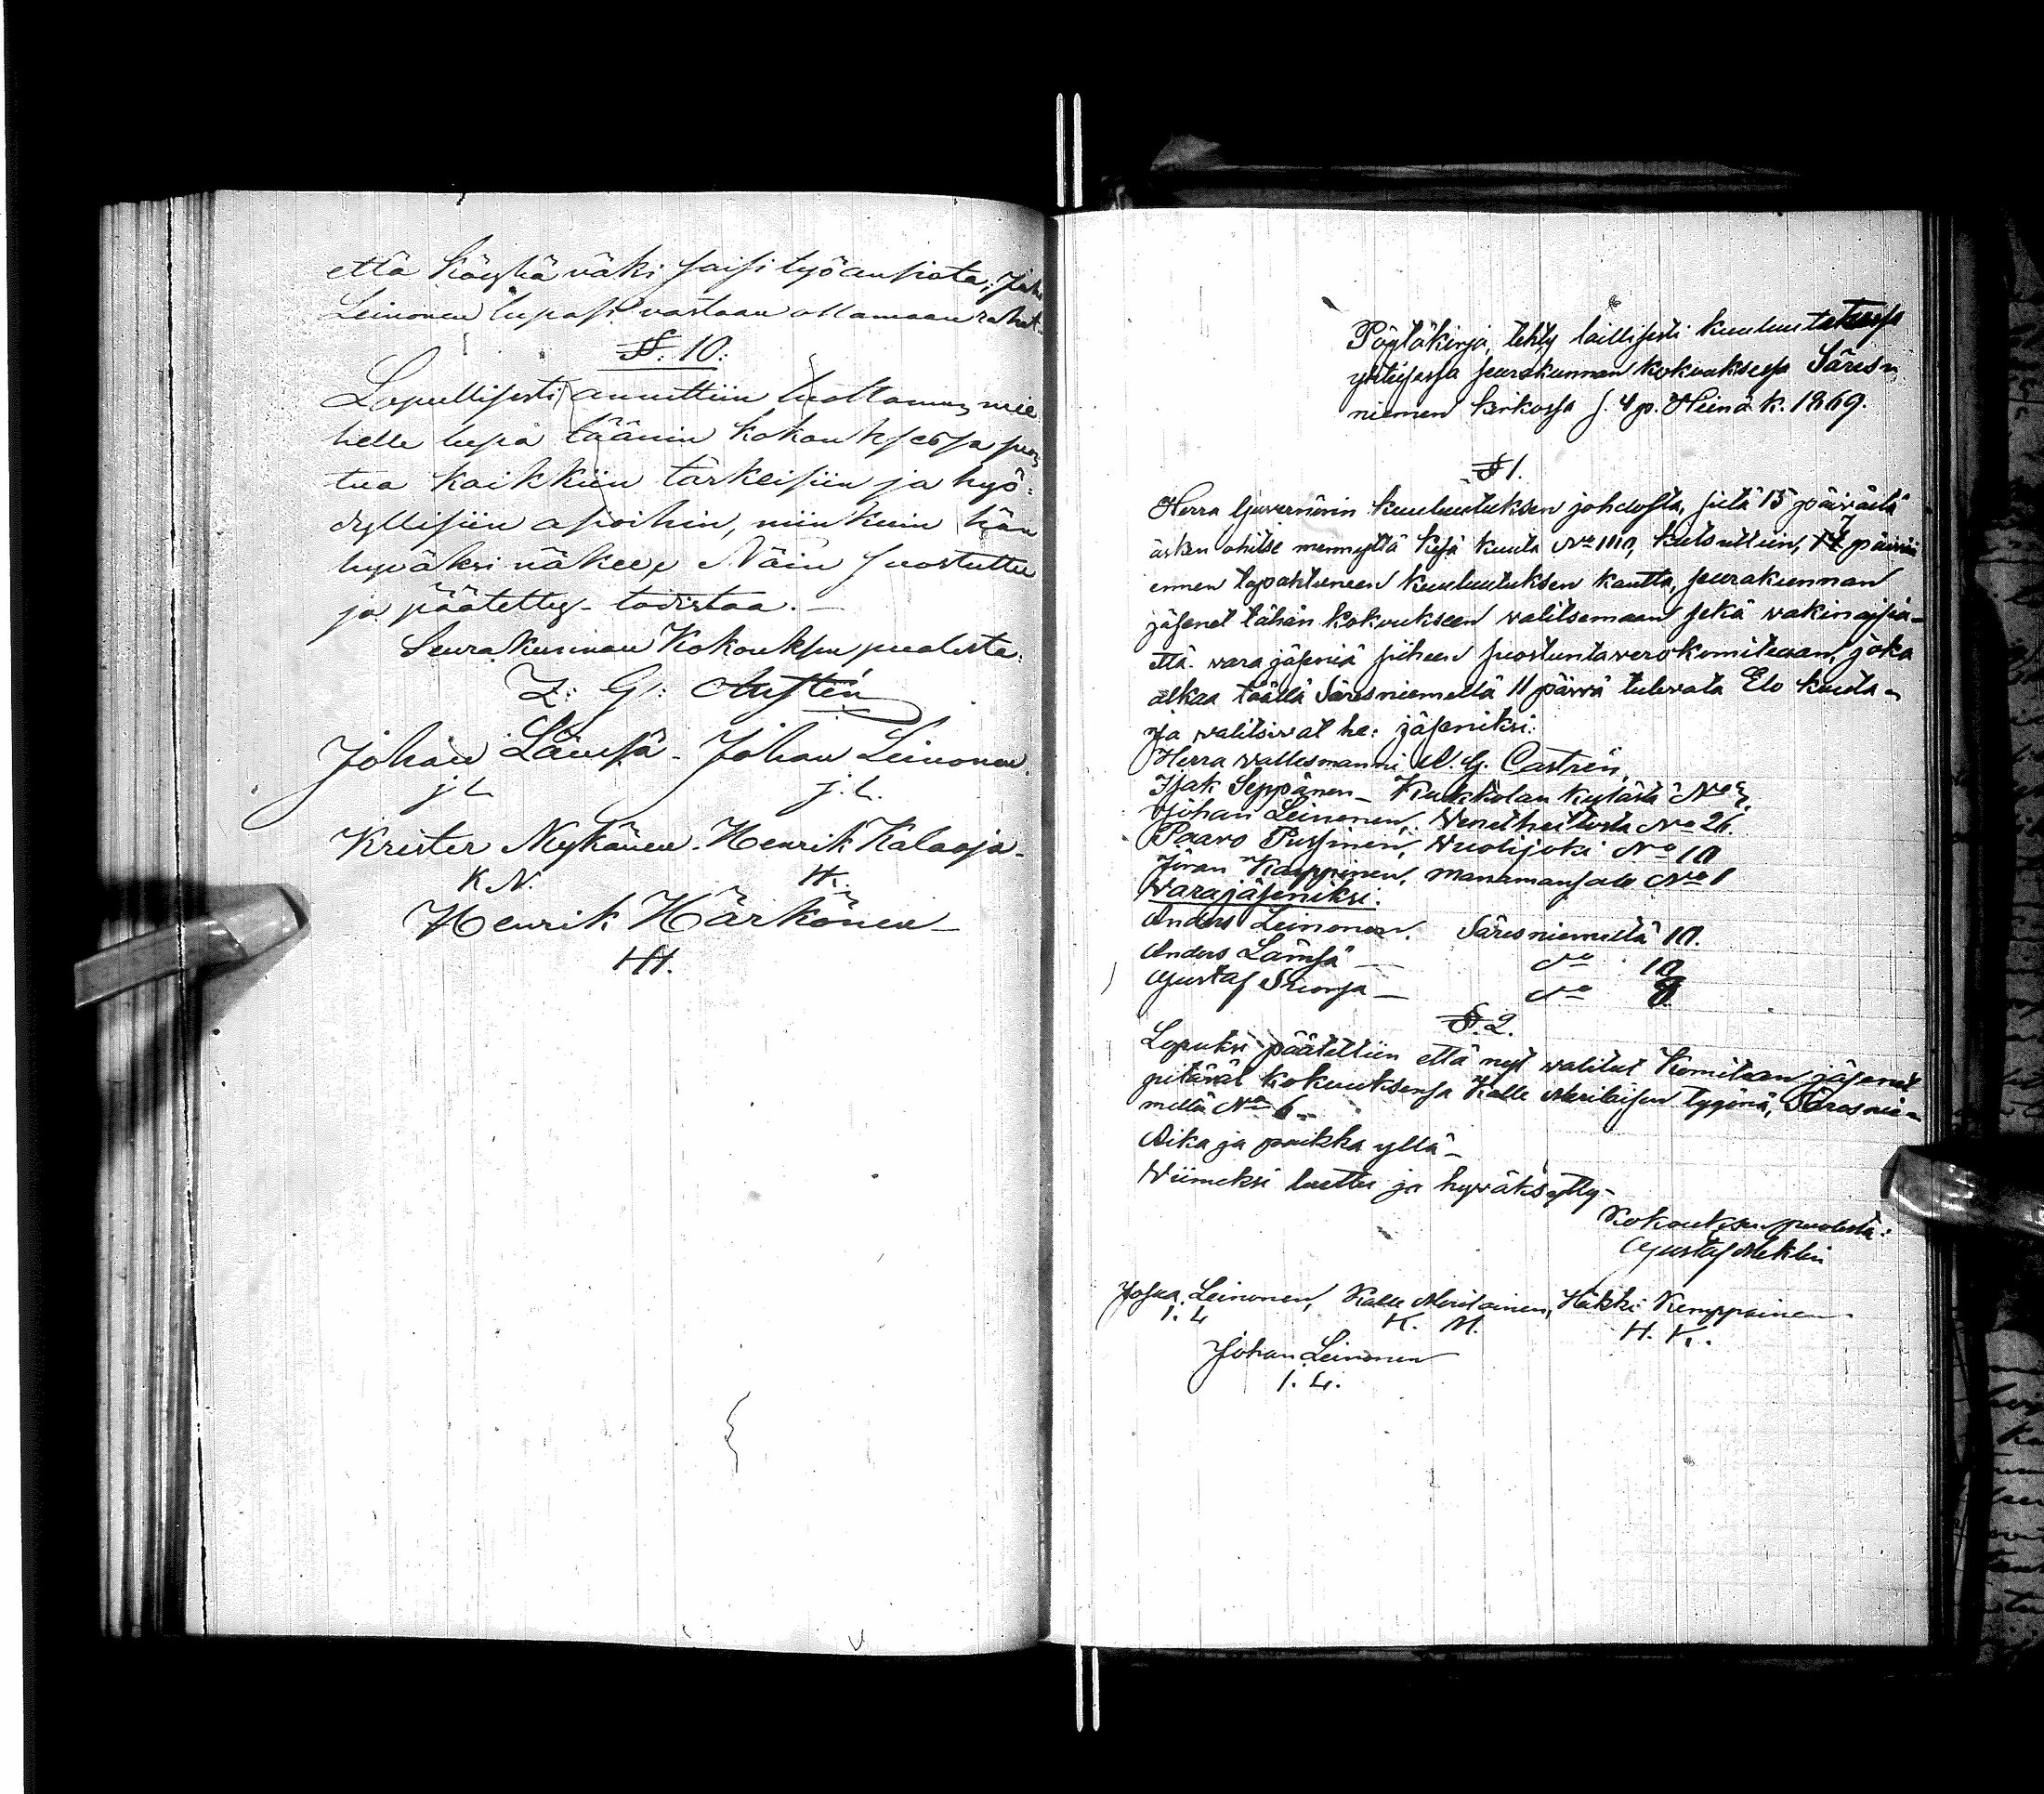 että köyhä väki saisi työansiota; Joh.
Leinonen lupasi vastaan ottamaan rahat.
§. 10.
Lopullisesti annettiin luottamus mie-
helle lupa läänin kokouksessa puo-
tua kaikkiin tärkeisiin ja hyö-
dyllisiin asioihin, niin kuin hän
hyväksi näkee, Näin suostuttu
ja päätetty todistaa.
Seurakunnan Kokouksen puolesta:
Z: G: Austén
Johan Lämsä - Johan Leinonen.
J L J. L.
Krister Nykänen. Henrik Kalaoja -
K N. H.
Henrik Härkönen -
HH.
Pöytäkirja, tehty laillisesti kuulutetussa
yhteisessä seurakunnan kokouksessa Säres-
niemen kirkossa s. 4 p. Heinä k. 1869.
§ 1.
Herra Guvernörin kuulutuksen johdosta, siitä 15 päivästä
äsken ohitse mennyttä Kesä kuuta kutsuttiin, päivää
ennen tapahtuneen kuulutuksen kautta, seurakunnan
jäsenet tähän kokoukseen valitsemaan sekä vakinaisia-
että vara jäseniä siihen suostuntavero komiteaan, joka
alkaa täällä Säresniemellä 11 päivä tulevata Elo kuuta -
ja valitsivat he: jäseniksi:
Herra vallesmanni N. G. Castrén,
Isak Seppänen - Kukkolan kylästä No
Johan Leinonen, Wenetheitosta No 26.
Paavo Pussinen, Wuolijoki No 10
Jöran Karppinen, manamansalo No 1
Warajäseniksi:
Anders Leinonen. Säresniemeltä 10.
Anders Lämsä — No 10
Gustaf Suorsa — No
§. 2.
Lopuksi päätettiin että nyt valitut Komitean jäsenet
pitävät kokouksensa Kalle Meriläisen tygönä, Säresnie-
mellä No 6 -
Aika ja paikka yllä -
Wiimeksi luettu ja hyväksytty -
Kokouksen puolesta:
Gustaf Meklin
Josua Leinonen, Kalle Merilainen, Heikki Kemppainen
I. L K. M. H. K.
Johan Leinonen
I. L.